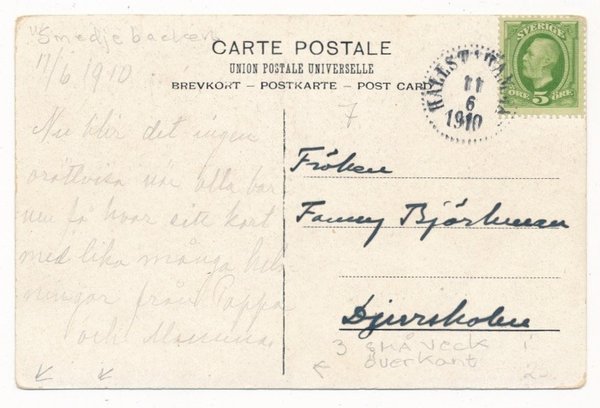 Smedjebacken
11/6 1910
CARTE POSTALE
UNION POSTALE UNIVERSELLE
BREVKORT – POSTKARTE – POST CARD
SVERIGE
ÖRE 5 ÖRE
HALLSTAHAMMAR
11
6
1910
7
Nu blir det ingen
orättvisa när alla bar
nen få hvar sitt kort
med lika många hels
ningar från Pappa
och Mamma.
Fröken
Fanny Björkman
Djursholm
3 SMÅ VECK i
överkant